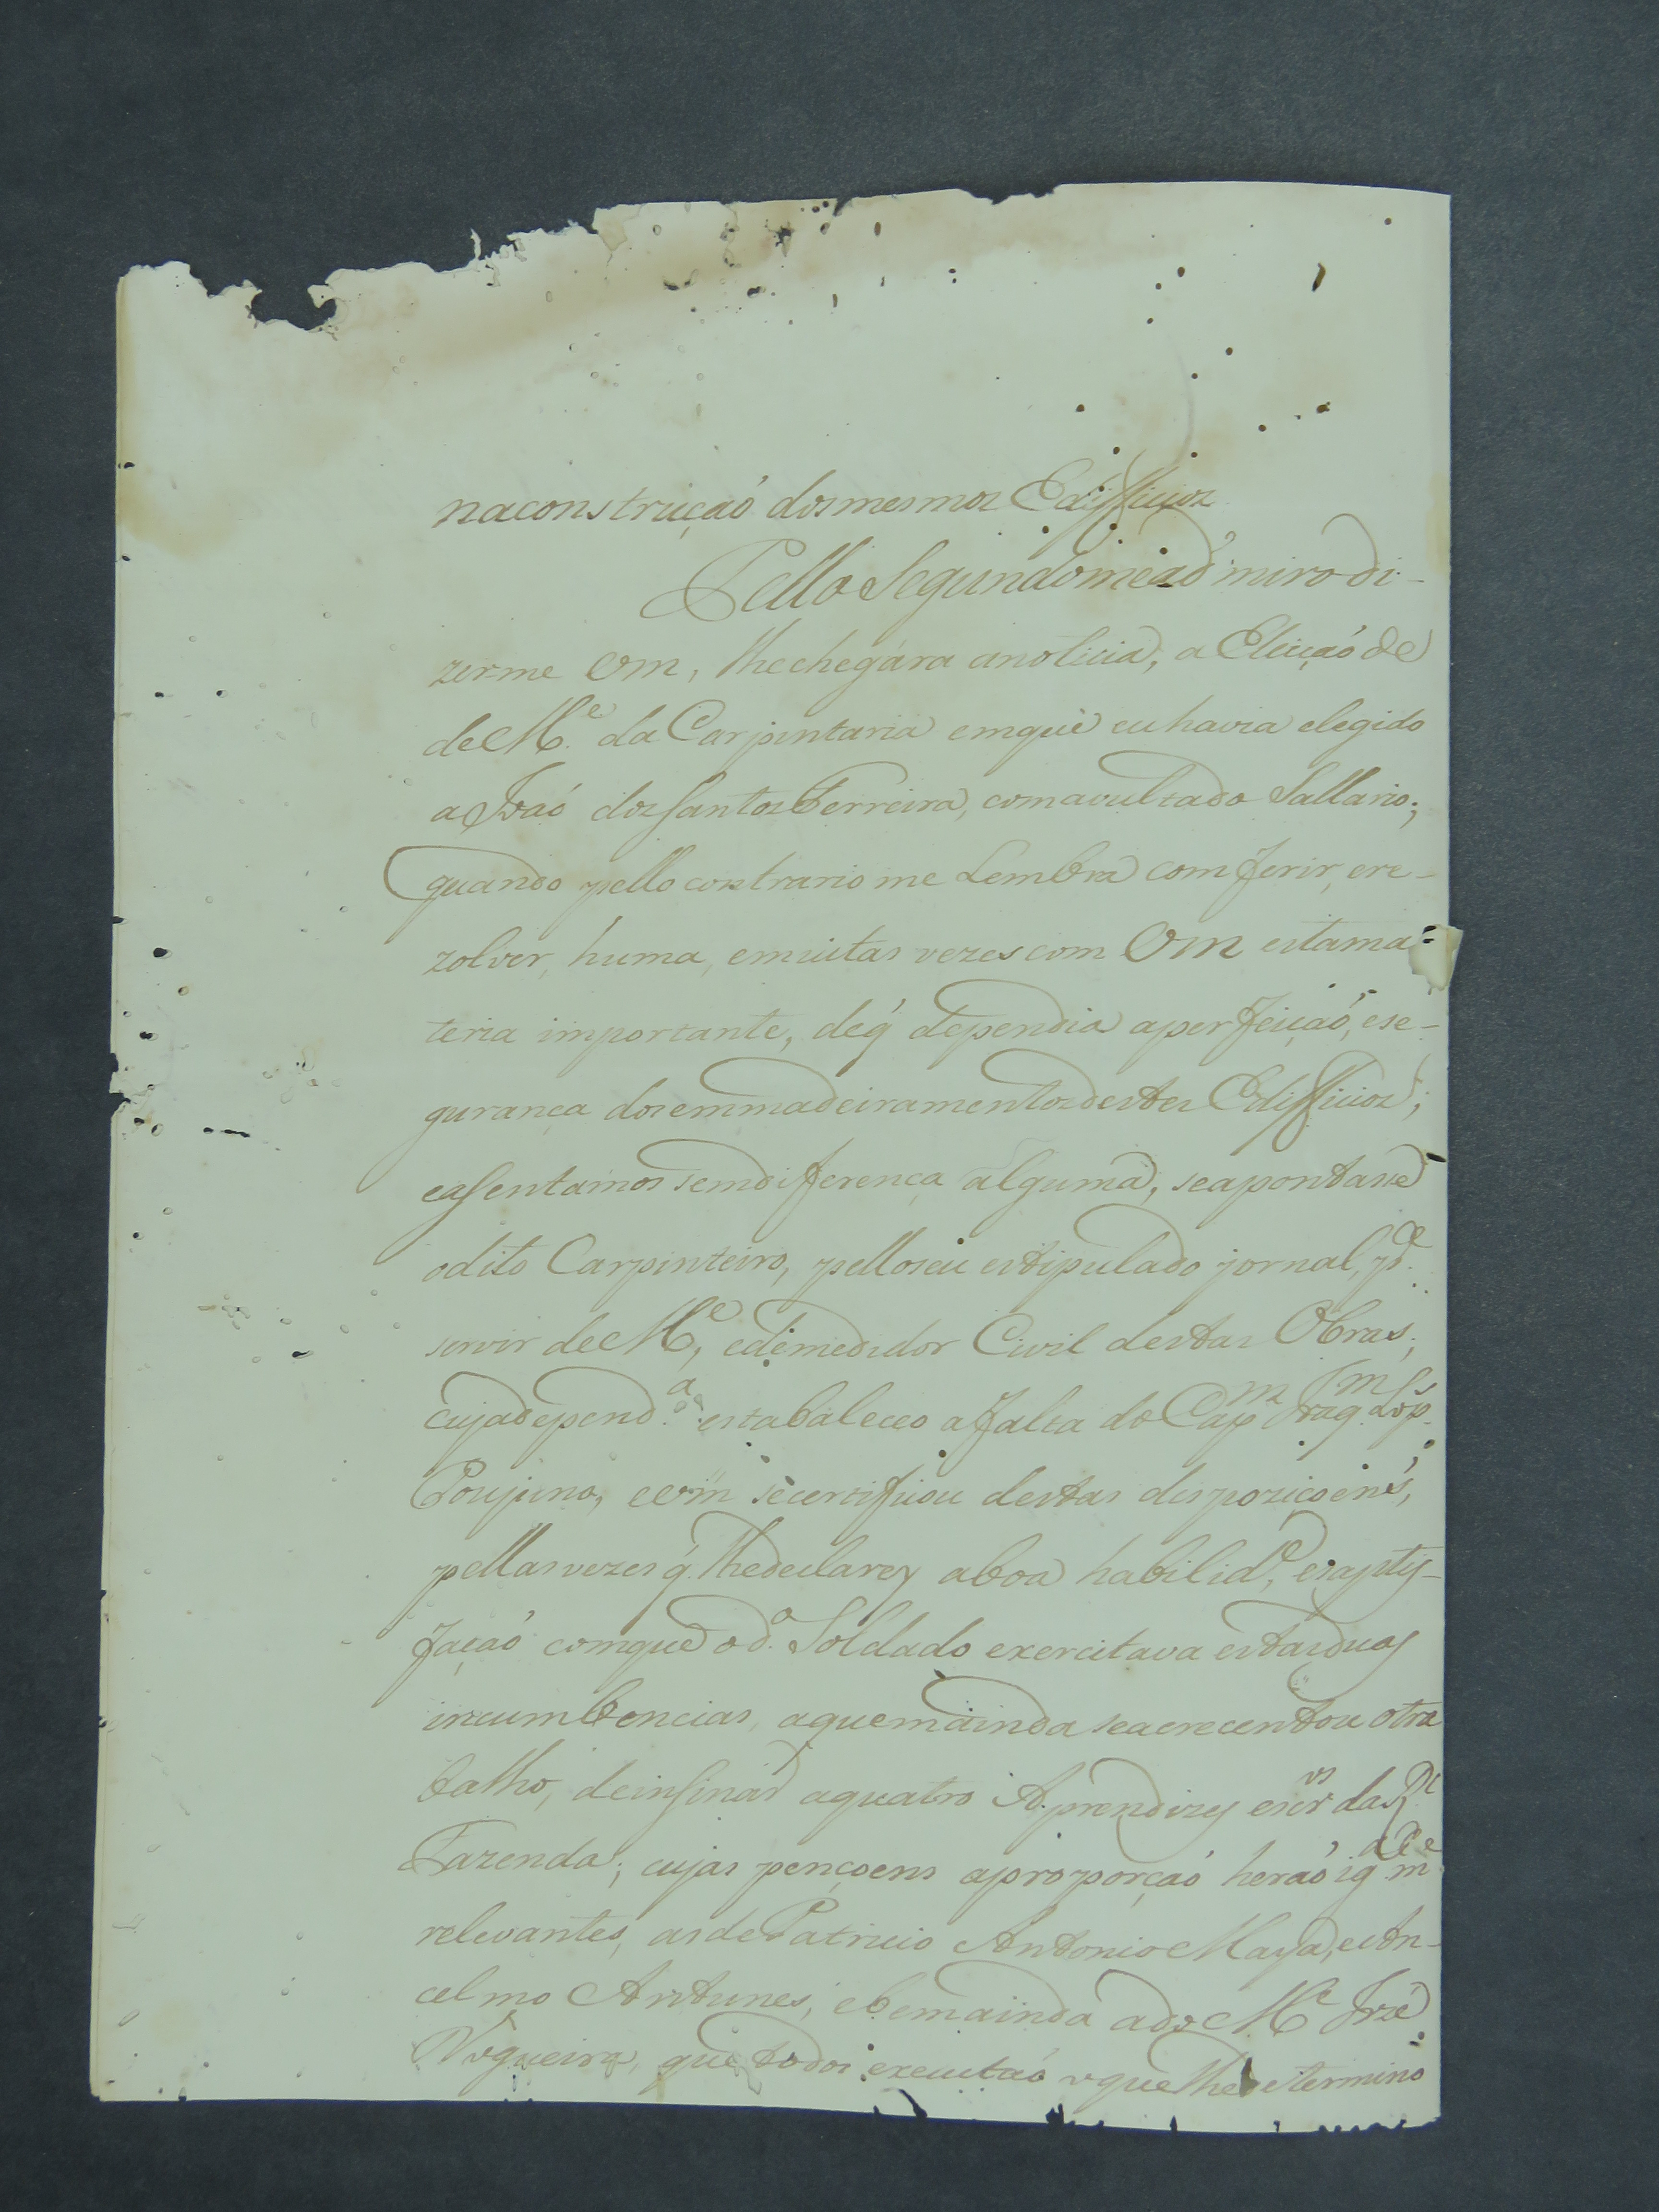 naconstruçaó dosmesmos Edifficios
Pello Segundo me ad miro di-
zerme Vm, lhechegára anoticia, a Eleiçaó de
de Me. da Carpintaria emque eu havia elegido
a Joaó dos Santos Ferreira, comavultado Sallario;
quando pello contrario me Lembra com ferir, ere-
zolver, huma, emuitas vezes com Vm estama-
teria importante, deq̃ dependia aperfeiçaó, ese-
gurança dosemmadeiramentos destes Edifficios;
eaSentamos semdiferença alguma, seapontase
odito Carpinteiro, pelloseu estipulado jornal, pde.
servir de Me, edemedidor Civil destas Obras,
cujadependa. estabaleceo afalta do Capm Frag. Lops
Poujino, eVm secertificou destas dispoziçoens,
pellasvezes q̃ lhedeclarey aboa habilide, esapty-
façaó comque odo. Soldado exercitava estasduas
incumbencias, aquemainda seacrecentou otra
balho, deinsinar aquatro Aprendizes escrvs da Rl
Fazenda; cujas pençoens aproporçaó heraó igalme
relevantes, asde Patricio Antonio Maya, eAn-
celmo Antunes, ebemainda ado Me Jozé
Nogueira, que todos executaó oque lhe determino